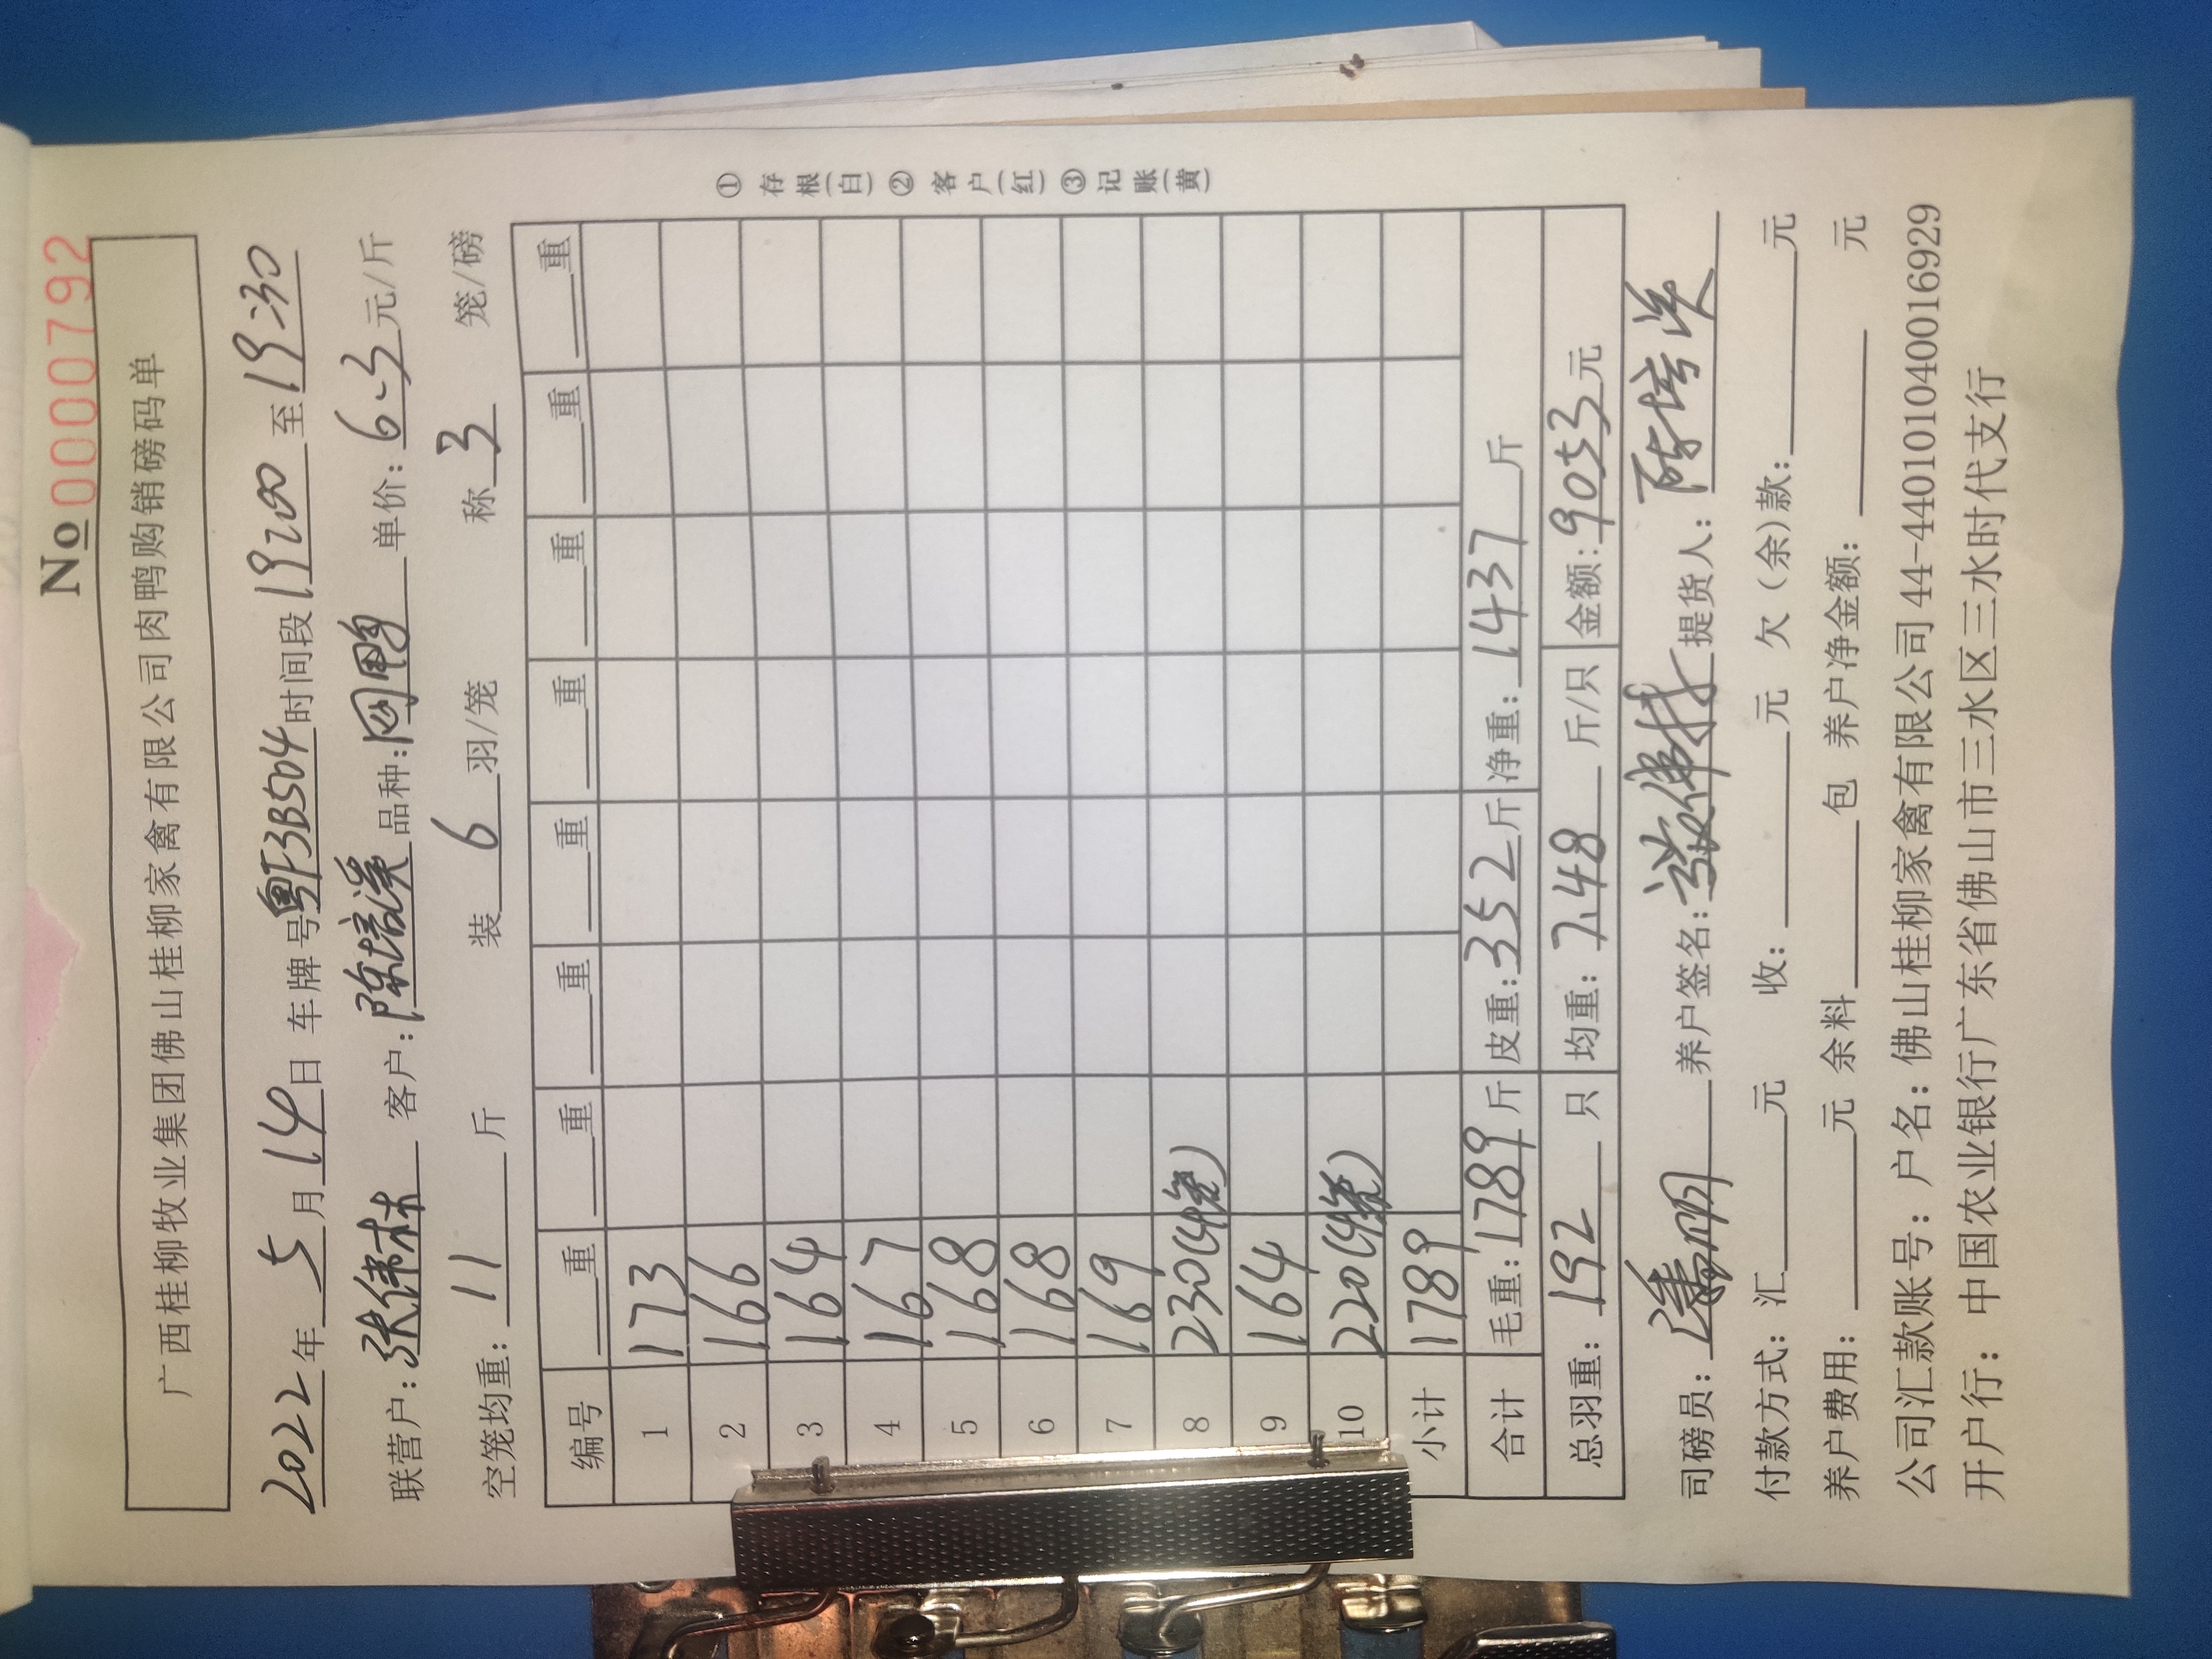 No 0000792
广西桂柳牧业集团佛山桂柳家禽有限公司肉鸭购销磅码单
2022年5月14日 车牌号粤F3B504时间段19:00至19:30
联营户:张伟林 客户:陈培溪 品种:网鸭 单价:6.3元/斤
空笼均重:11斤 装6羽/笼 称3笼/磅
编号 重 重 重 重 重 重 重 重
1 173
2 166
3 164
4 167
5 168
6 168
7 169
8 230(4笼)
9 164
10 220(4笼)
小计 1789
合计 毛重:1789斤 皮重:352斤 净重:1437斤
总羽重:192只 均重:7.48斤/只 金额:9053元
①存根(白)②客户(红)③记账(黄)
司磅员: 养户签名: 提货人:陈培溪
付款方式:汇 元 收: 元 欠(余)款: 元
养户费用: 元 余料 包 养户净金额: 元
公司汇款账号:户名:佛山桂柳家禽有限公司44-440101040016929
开户行:中国农业银行广东省佛山市三水区三水时代支行